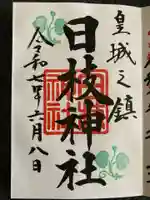 皇城之鎮
日枝神社
令和七年六月八日